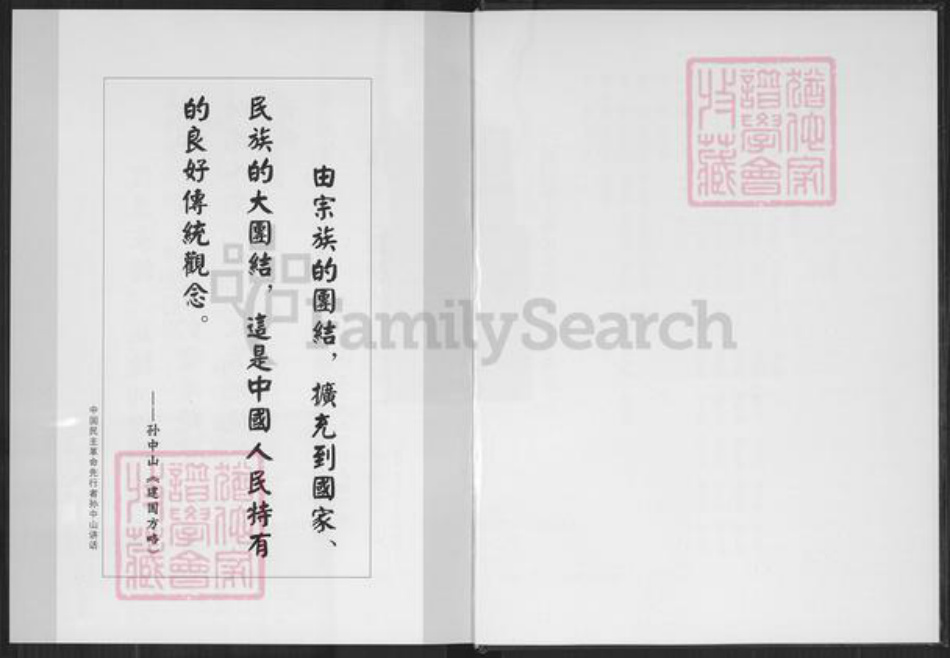 由宗族的團結，擴充到國家、
民族的大團結，這是中國人民持有
的良好傳統觀念。
——孙中山《建国方略》
中国民主革命先行者孙中山讲话
猶他家
譜學會
收藏
猶他家
譜學會
收藏
FamilySearch